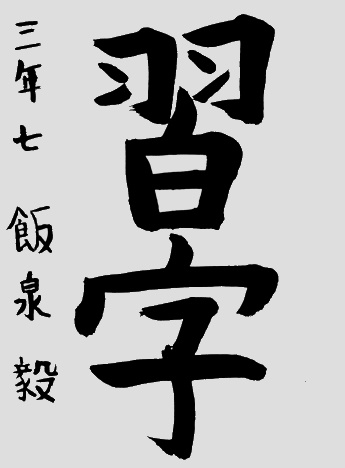 習字
三年七 飯泉毅